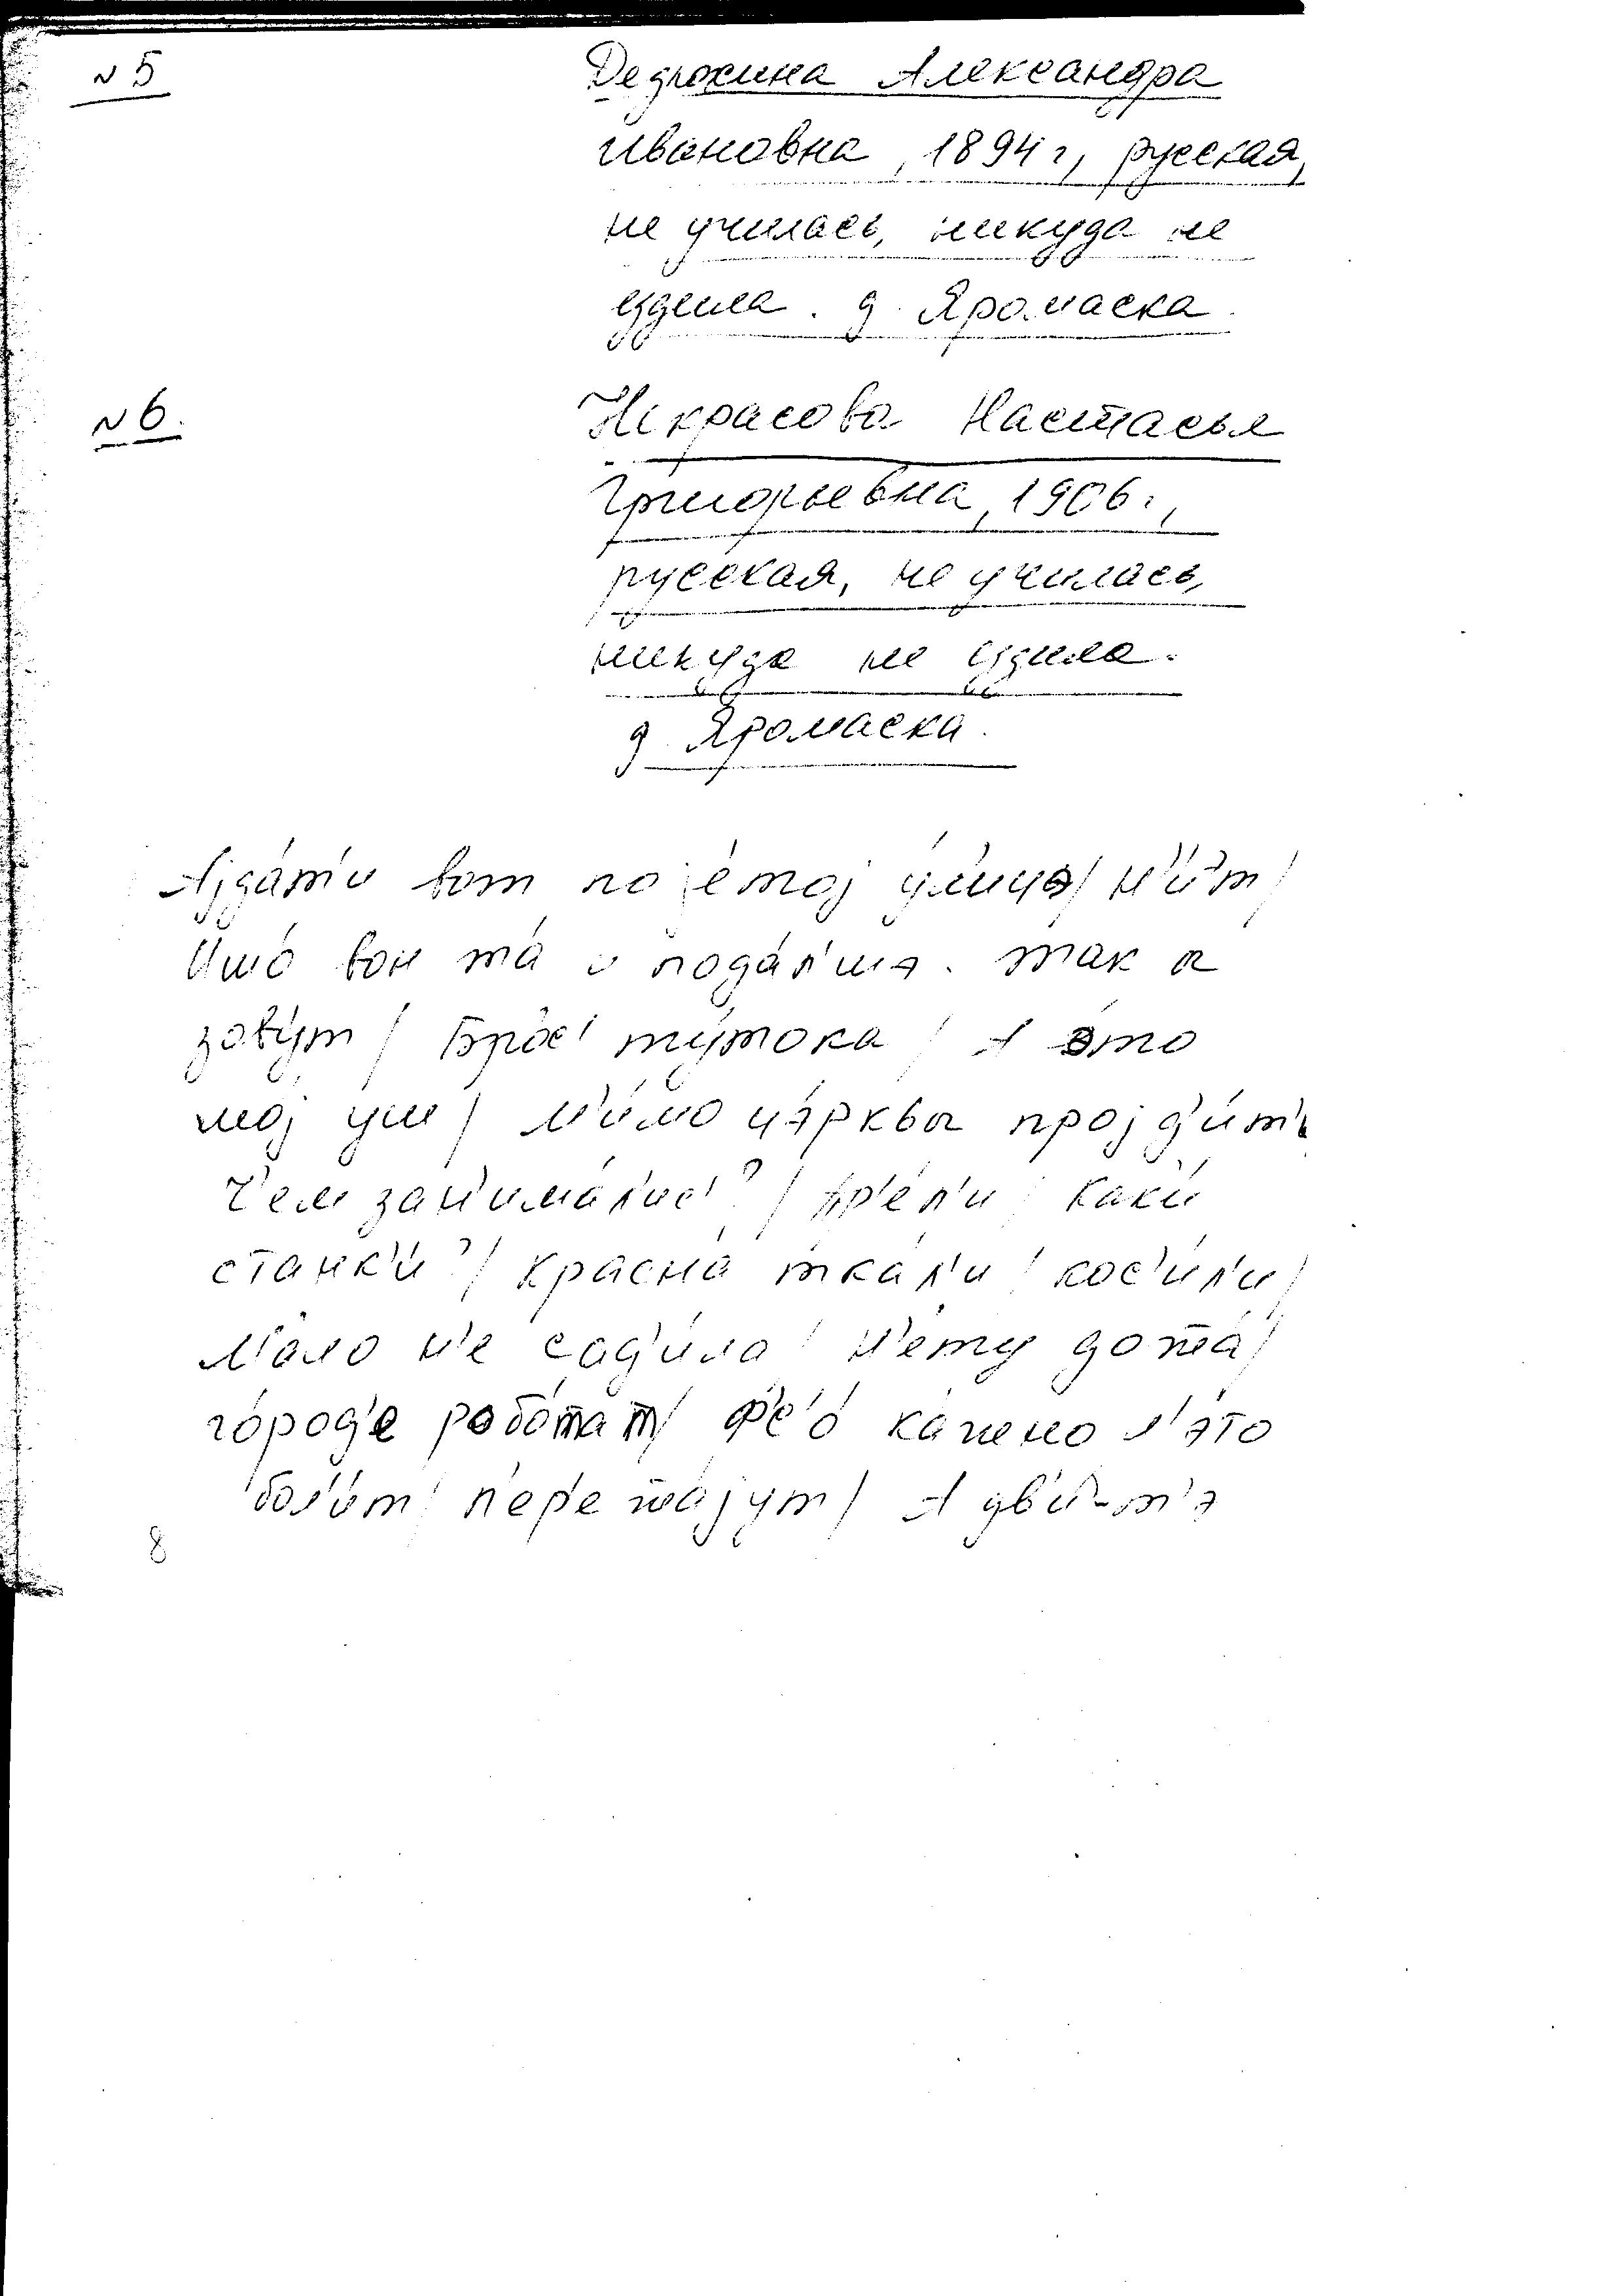 N 5
Дедюхина Александра
Ивановна, 1894 г, русская,
не училась, никуда не
ездила. д. Яромаска.
N 6.
Некрасова Настасья
Григорьевна, 1906.,
русская, не училась,
никуда не ездила.
д. Яромаска.
вот по је́тој у́л'ицэ/ н'и́т/
Ишо́ вон та́ и пода́л'шэ. так и
зову́т/ Брос' ту́тока/ А э́то
мој уш/ м'и́мо цэ́рквы пројд'и́т'
Ч'ем зан'има́лис'?/ пр'а́л'и/ каки́
станк'и́?/ красна́ тка́л'и/ кос'и́л'и/
Ма́ло н'е сад'и́ла/ н'е́ту дот́а/
го́род'е рабо́тат/ Ф'с'о́ ка́жно л'э́то
бол'и́т/ п'ер'ета́јут/ А дв'и́-т'э
8